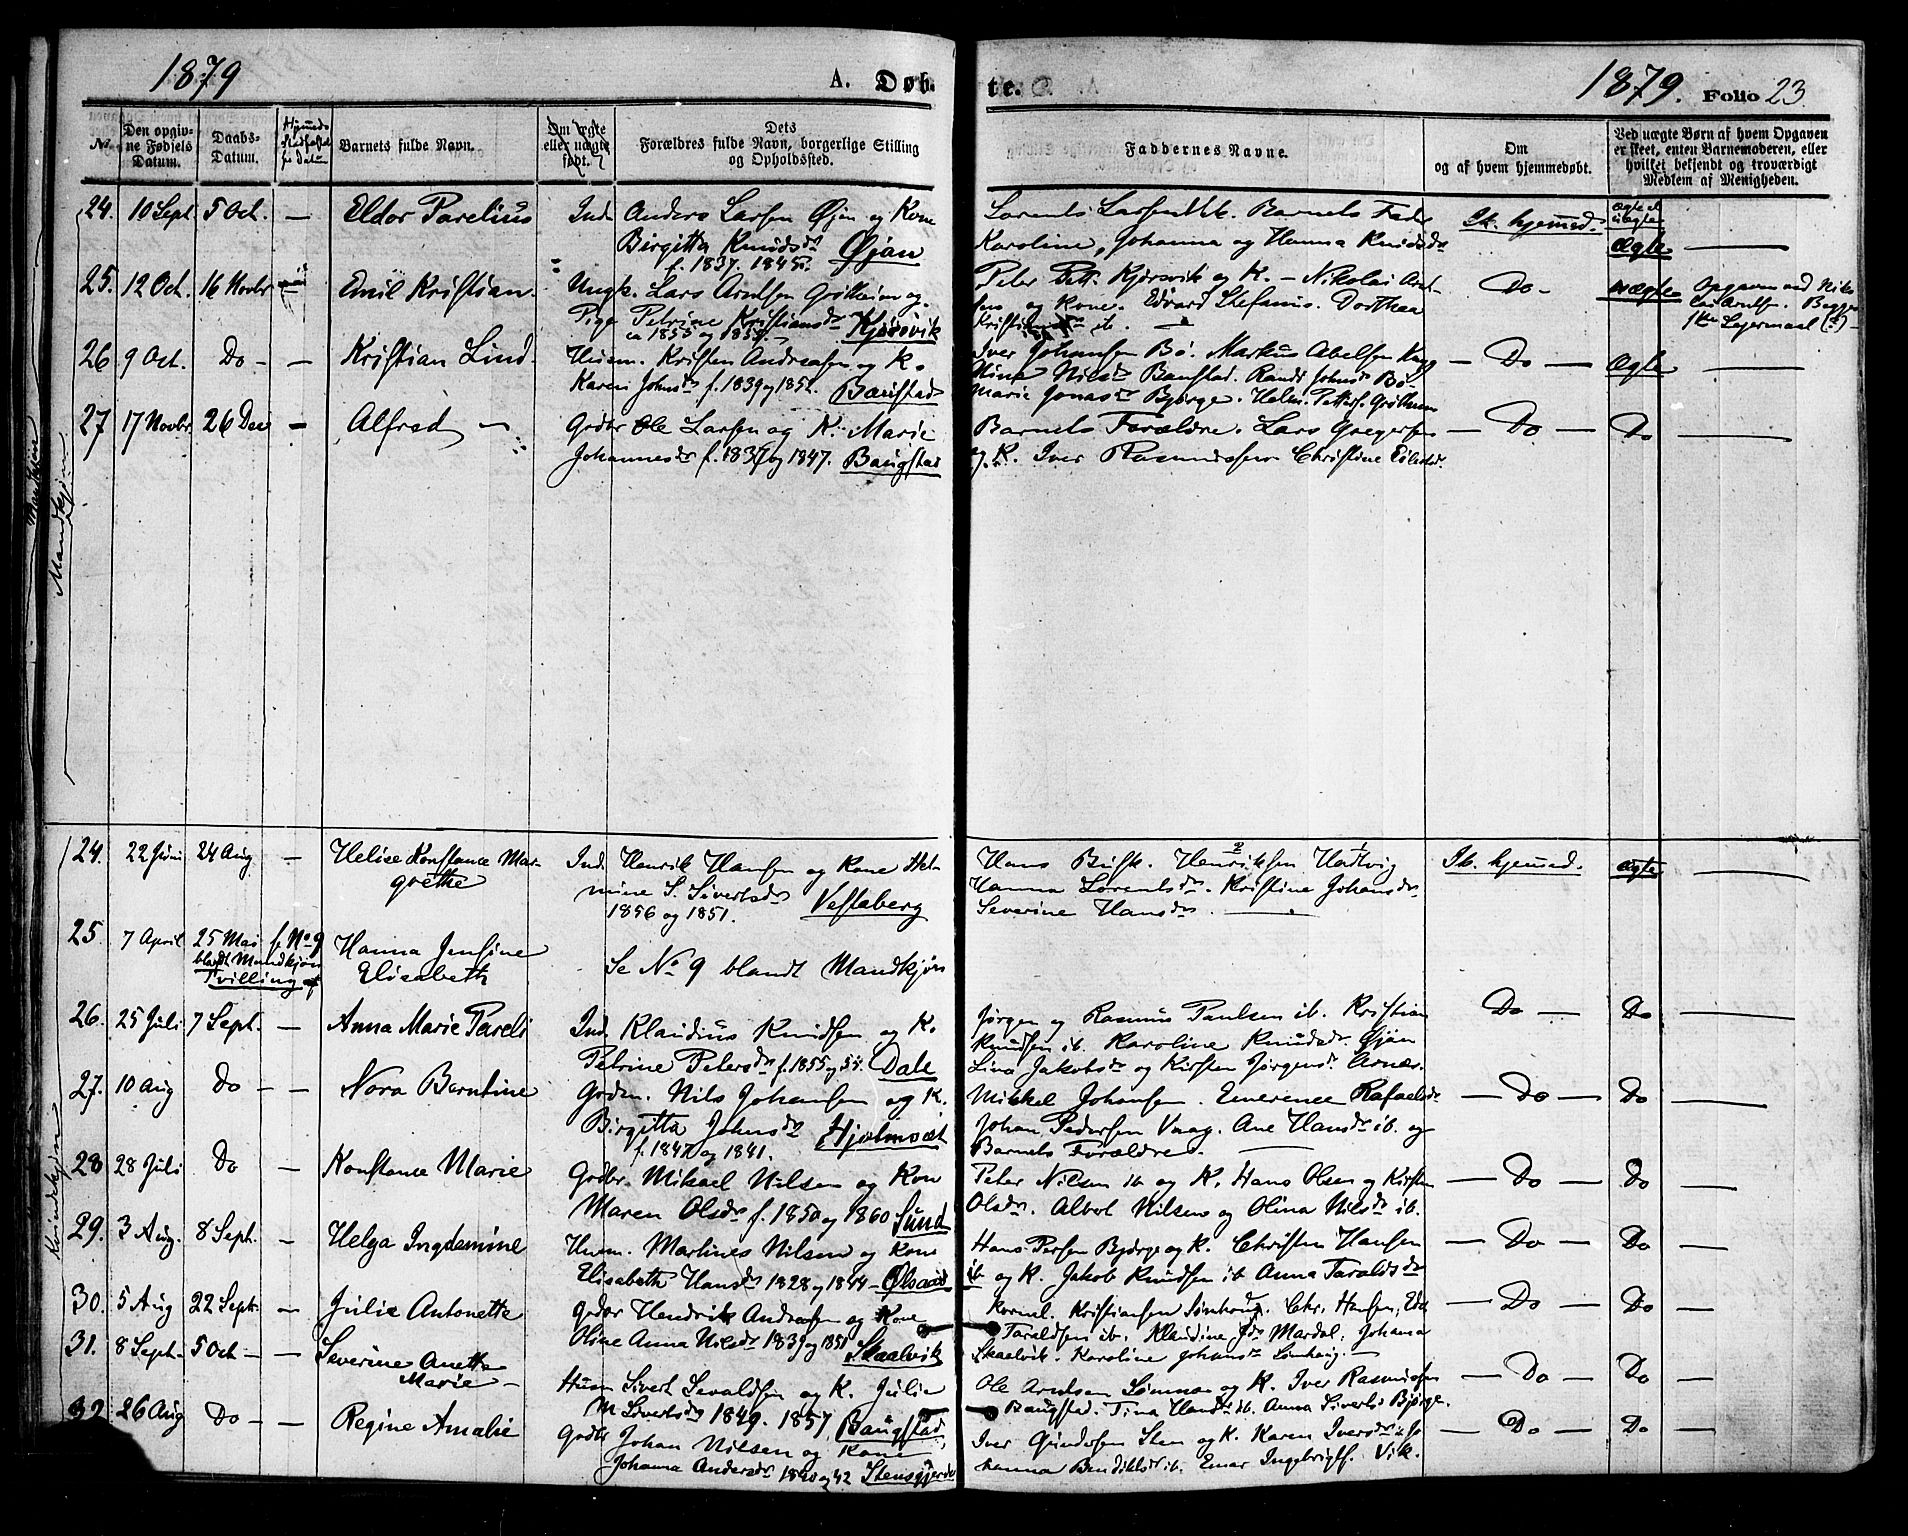 1879 A. Døb-
te. 1879. Folio 23
No. Den opgiv-
ne Fødsels
Datum. Daabs-
Datum. Barnets fulde Navn. Om ægte
eller uægte
født. Dets
Forældres fulde Navn, borgerlige Stilling
og Opholdssted.
Faddernes Navne. Om
og af hvem hjemmedøbt. Ved uægte Børn af hvem Opgaven
er skeet, enten Barnemoderen, eller
hvilket bekjendt og troværdigt
Medlem af Menigheden.
Mandkjøn
24. 10 Sept 5 Oct. — Eldor Parelius Ind. Anders Larsen Øjen og Kone
Birgitta Knudsdr Øjan
f. 1837. 1845.
Lorents Larsen Barnets Fader
Karoline, Johanna og Hanna Knudsdr
Ik. hjemmed. ægte el
uægte
Ægte —
25. 12 Oct. 16 Novbr Emil Kristian. Ungk. Lars Arntsen Grøtheim og
Pige Petrine Kristiansdr Kjørsvik
ca 1855 og 1859.
Peter Pett. Kjørsvik og K. — Nikolai Arnt-
sen og Kone. Edvard Stefanus. Dorthea
Kristiansdr ib. —
Do uægte Opgaven ved Niko-
lai Arntsen
1ste Lejermaal (?) —
26 9 Oct. Do — Kristian Lind. Husm. Kristen Andreasen og K.
Karen Johnsdr f. 1839 og 1852. Baustad
Iver Johansen Bø. Markus Abelsen
Nina Nilsdr Baustad. Randi Johnsdr Bø
Marie Jonasdr Bjørge. Helm. Petters. Grøtheim
— Do — Ægte —
27 17 Novbr 26 Dec — Alfred — Grdbr Ole Larsen og K. Marie
Johannesdr f. 1837 og 1847. Baugstad
Barnets Forældre. Lars Gregersen
og K. Iver Rasmussen Christine
— Do — Do —
Kvindekjøn
24. 22 Juni 24 Aug — Helise Konstance Mar-
grethe Ind. Henrik Hansen og Kone Hel-
mine S. Sivertsdr
1856 og 1851. Vestaberg
Hans Busk. Henriksen Hadvig
Hanna Lorentsdr. Kristine Johansdr
Severine Hansdr. —
Ik. hjemmed. ægte —
25. 7 April 25 Mai f. No 9
blandt Mandkjøn
Tvilling Hanna Jensine
Elisabeth Se No 9 blandt Mandkjøn
26. 25 Juli 7 Sept. — Anna Marie Pareli Ind. Klaudius Knudsen og K.
Petrine Petersdr f. 1855 og 55. Dale
Jørgen og Rasmus Paulsen ib. Kristian
Knudsen ib. Karoline Knudsdr Øjan
Lina Jakobsdr og Kirsten Jørgensdr Arnæs.
Do — Do —
27. 10 Aug Do — — Nora Berntine Grdm. Nils Johansen og K.
Birgitta Johnsdr Hjelmsæt
f. 1847 og 1841.
Mikkel Johansen. Emerense Rafaelsdr
Johan Pedersen Vaag. Ane Hansdr ib. og
Barnets Forældre. —
— Do — Do —
28 28 Juli Do — Konstance Marie Grdbr. Mikael Nilsen og Kone
Maren Olsdr f. 1850 og 1860 Sund
Peter Nilsen ib og K. Hans Olsen og Kirsten
Olsdr. Albert Nilsens og Olina Nilsdr ib.
— Do — Do —
29. 3 Aug. 8 Sept. — Helga Ingdamine Husm. Martines Nilsen og Kone
Elisabeth Hansdr 1828 og 1844 —
Hans Persen Bjørge og K. Christen Hansen
ib og K. Jakob Knudsen ib Anna Taraldsdr
— Do — Do —
30. 5 Aug 22 Sept. — Julie Antonette Grdbr Hendrik Andreasen og Kone
Oline Anna Nilsdr 1839 og 1851 Skaalvik
Kornel. Kristiansen Lønhaug. Chr. Hansen, Eda
Taraldsen ib. Klaudine Jdr Mardal. Johana
Skaalvik. Karoline Johansdr Lønhaug. —
— Do — Do —
31. 8 Sept. 5 Oct — — Severine Anette
Marie — Husm Sivert Sevaldsen og K. Julie
M. Sivertsdr 1849. 1857 Baugstad
Ole Arntsen Sømnæs og K. Iver Rasmussen
Baugstad. Tina Hansdr ib. Anna Sivertsdr Bjørge.
— Do — Do —
32 26 Aug Do — — Regine Amalie Grdbr Johan Nilsen og Kone
Johanna Andersdr 1840 og 42 Stensgjerdet
Iver Gundersen Sten og K. Karen Iversdr Jo-
hanna Bendiktsdr ib. Einar Ingebrigts. Vik.
— Do — Do —